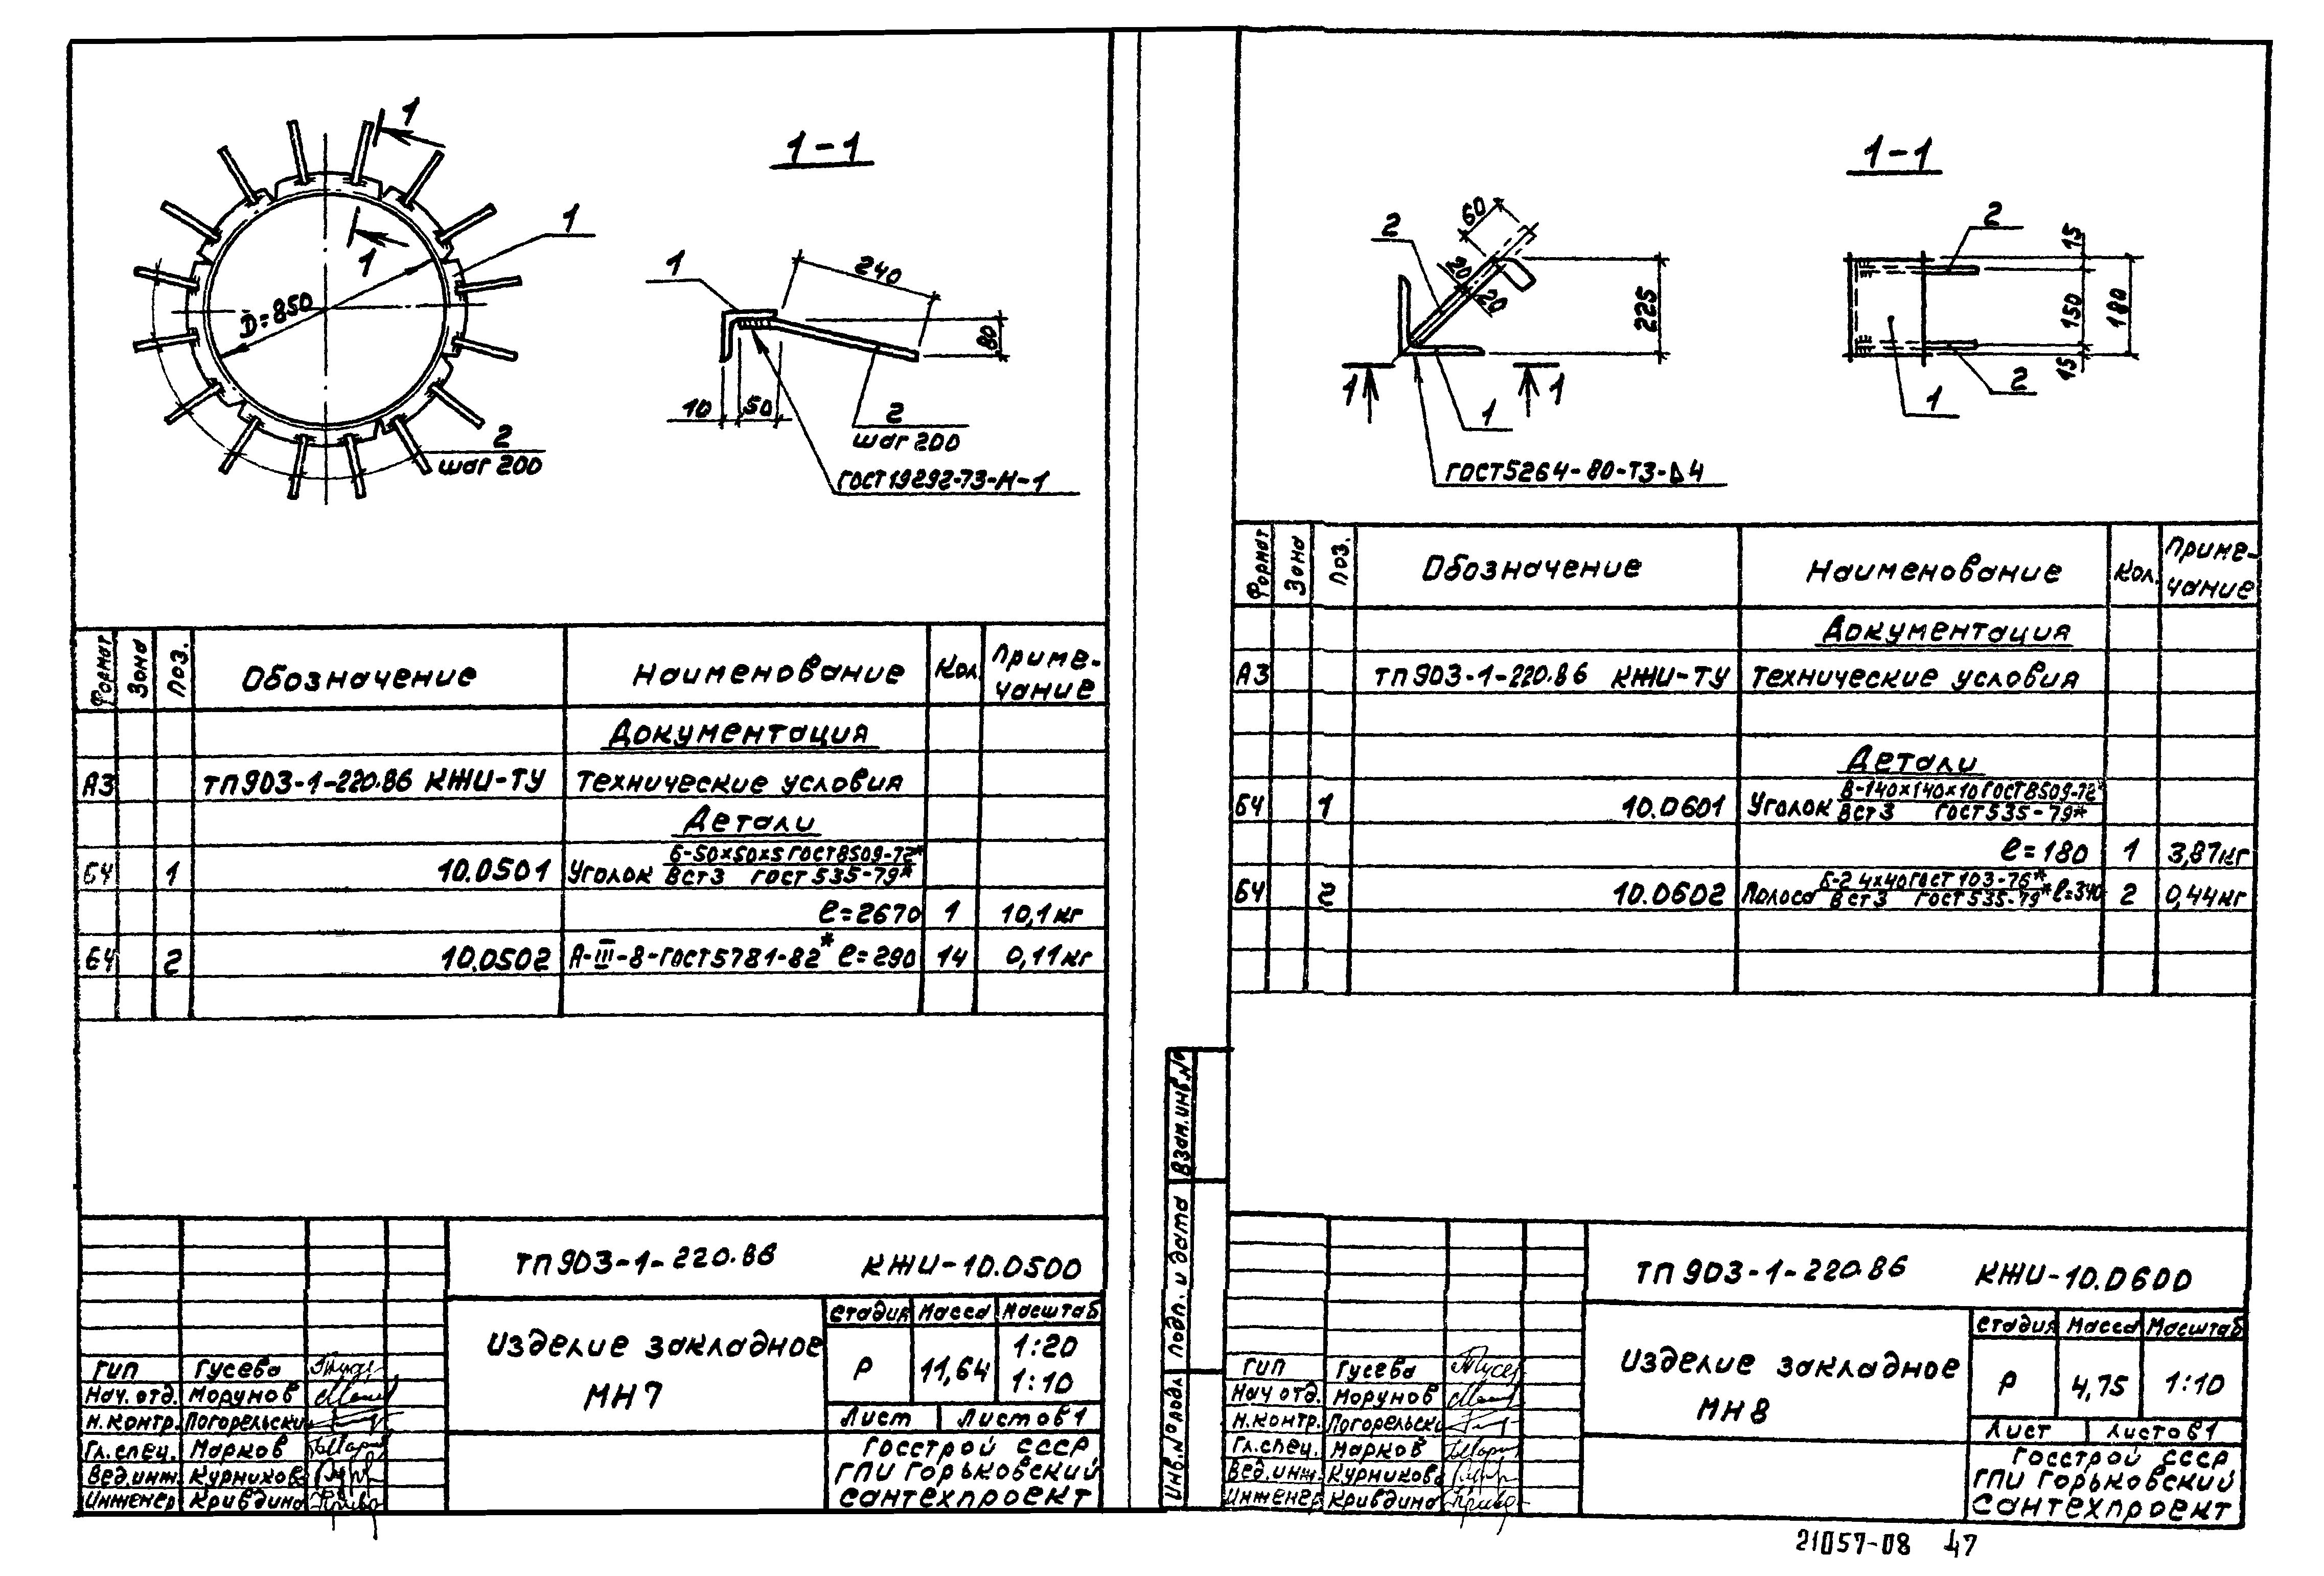 1
1
1
D=850
2
шаг 200
1-1
1
240
80
10
50
2
шаг 200
ГОСТ19292-73-Н-1
Формат
Зона
Поз.
Обозначение
Наименование
Кол.
Приме-
чание
Документация
А3 ТП903-1-220.86 КЖИ-ТУ Технические условия
Детали
Б4 1 10.0501 Уголок Б-50×50×5 ГОСТ8509-72*
ВСт3 ГОСТ 535-79*
ℓ=2670 1 10,1кг
Б4 2 10.0502 А-III-8-ГОСТ5781-82* ℓ=290 14 0,11кг
ТП903-1-220.86 КЖИ-10.0500
Изделие закладное
МН7
Стадия Масса Масштаб
Р 11,64 1:20
1:10
Лист Листов 1
Госстрой СССР
ГПИ Горьковский
Сантехпроект
ГИП Гусева
Нач.отд. Морунов
Н.контр. Погорельски
Гл.спец. Марков
Вед.инж. Курников
Инженер Кривдина
1-1
2
60
20
20
225
1
1
1
ГОСТ5264-80-Т3-⊿4
2
15
150
180
15
2
1
Формат
Зона
Поз.
Обозначение
Наименование
Кол.
Приме-
чание
Документация
А3 ТП903-1-220.86 КЖИ-ТУ Технические условия
Детали
Б4 1 10.0601 Уголок В-140×140×10 ГОСТ8509-72*
ВСт3 ГОСТ535-79*
ℓ=180 1 3,87кг
Б4 2 10.0602 Полоса Б-2 4×40 ГОСТ 103-76*
ВСт3 ГОСТ535-79* ℓ=340 2 0,44кг
Взам.инв.№
Подп. и дата
Инв.№подл.
ТП903-1-220.86 КЖИ-10.0600
Изделие закладное
МН8
Стадия Масса Масштаб
Р 4,75 1:10
Лист Листов 1
Госстрой СССР
ГПИ Горьковский
Сантехпроект
ГИП Гусева
Нач отд. Морунов
Н.контр. Погорельски
Гл.спец. Марков
Вед.инж. Курникова
Инженер Кривдина
21057-08 47